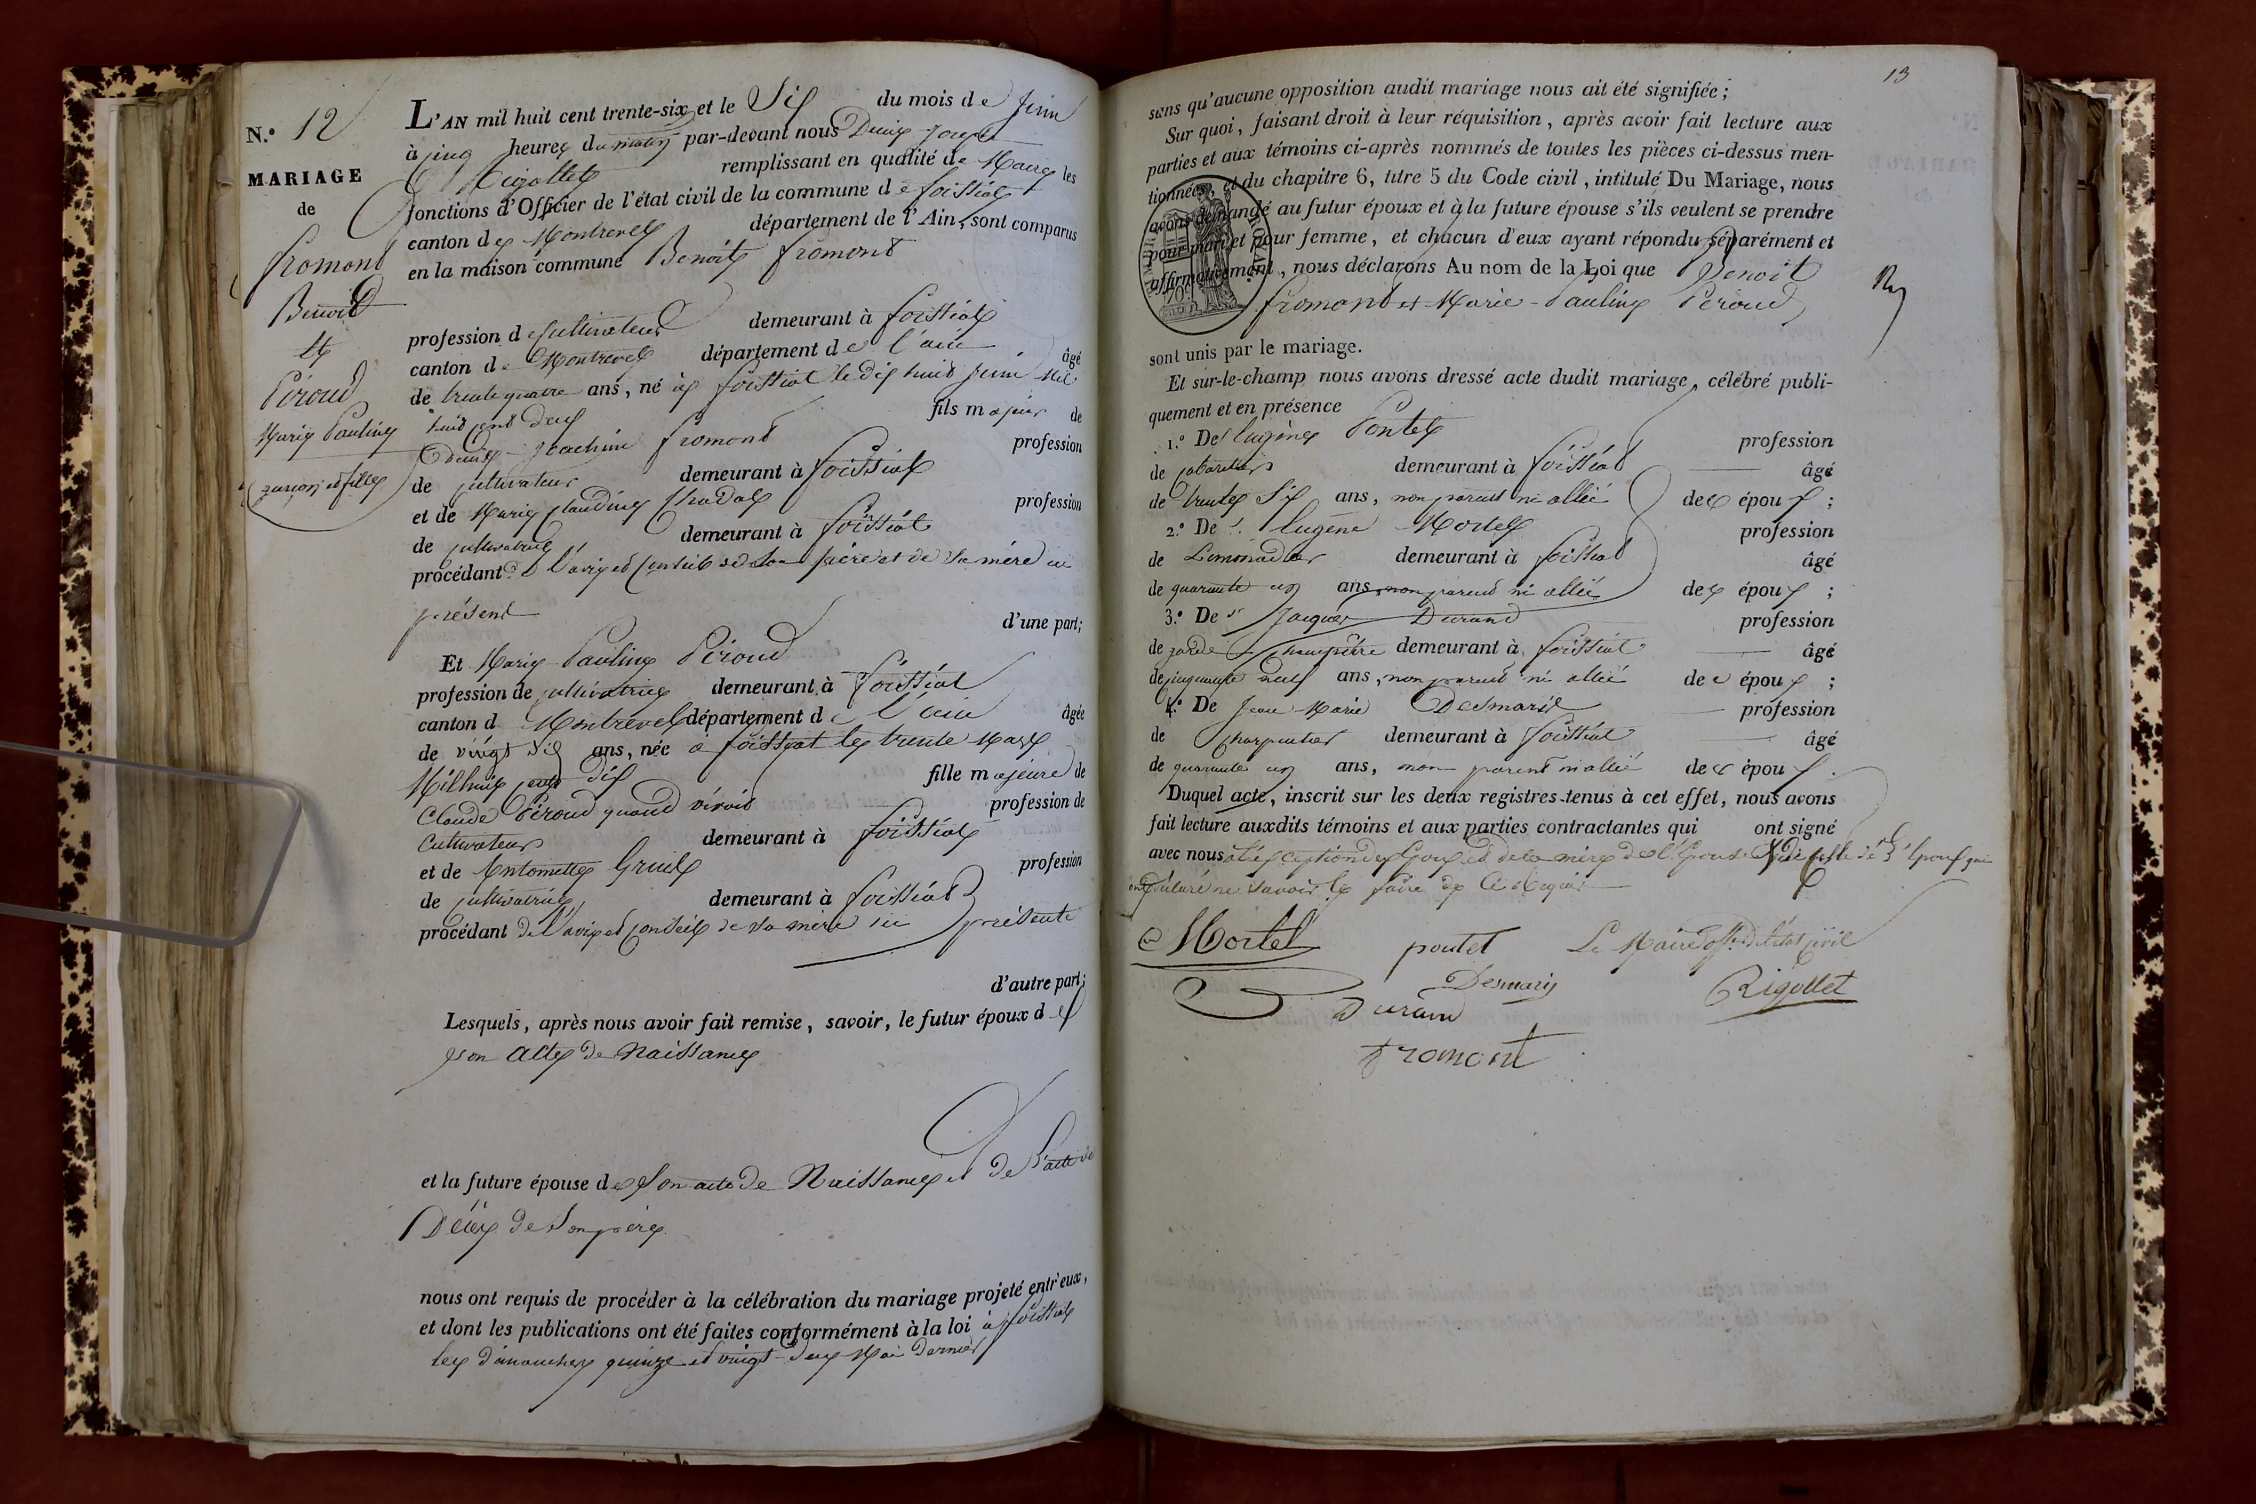 N.º 12
MARIAGE
de
Fromont
Benoit
et
Péroud
Marie Pauline
garçon et fille
L'AN mil huit cent trente-six et le Six du mois de Juin
à cinq heures du matin par-devant nous Denis Joseph
Rigollet remplissant en qualité de Maire les
fonctions d'Officier de l'état civil de la commune de foissiat
canton de Montrevel département de l'Ain, sont comparus
en la maison commune Benoit fromont
profession de cultivateur demeurant à foissiat
canton de Montrevel département de l'ain âgé
de trente quatre ans, né à foissiat le dix huit juin mil
huit cent deux fils majeur de
Denis-Joachim fromont profession
de cultivateur demeurant à foissiat
et de Marie Claudine Chadal profession
de cultivatrice demeurant à foissiat
procédant de l'avis et conseil de son père et de sa mère ici
présent
d'une part;
Et Marie-Pauline Péroud
profession de cultivatrice demeurant à foissiat
canton d Montrevel département de l'ain âgée
de vingt six ans, née à foissiat le trente Mars
Mil huit cent dix fille majeure de
Claude Péroud quand vivait profession de
Cultivateur demeurant à foissiat
et de Antoinette Gruel profession
de cultivatrice demeurant à foissiat
procédant de l'avis et conseil de sa mère ici présente
d'autre part;
Lesquels, après nous avoir fait remise, savoir, le futur époux de
son acte de Naissance
et la future épouse de son acte de Naissance et de l'acte de
Décès de son père
nous ont requis de procéder à la célébration du mariage projeté entr'eux,
et dont les publications ont été faites conformément à la loi à foissiat
les dimanches quinze et vingt-deux Mai dernier
13
sans qu'aucune opposition audit mariage nous ait été signifiée;
Sur quoi, faisant droit à leur réquisition, après avoir fait lecture aux
parties et aux témoins ci-après nommés de toutes les pièces ci-dessus men-
tionnées, et du chapitre 6, titre 5 du Code civil, intitulé Du Mariage, nous
avons demandé au futur époux et à la future épouse s'ils veulent se prendre
pour mari et pour femme, et chacun d'eux ayant répondu séparément et
affirmativement, nous déclarons Au nom de la Loi que Benoit
fromont et Marie-Pauline Péroud
sont unis par le mariage.
Et sur-le-champ nous avons dressé acte dudit mariage, célébré publi-
quement et en présence
1.º De Eugène Pontet profession
de cabaretier demeurant à foissiat âgé
de trente six ans, non parent ni allié des époux;
2.º De Eugène Mortel profession
de Limonadier demeurant à foissiat âgé
de quarante un ans, non parent ni allié des époux;
3.º De Jacques Durand profession
de garde champêtre demeurant à foissiat âgé
de cinquante neuf ans, non parent ni allié des époux;
4.º De Jean-Marie Desmaris profession
de charpentier demeurant à foissiat âgé
de quarante un ans, non parent ni allié des époux.
Duquel acte, inscrit sur les deux registres tenus à cet effet, nous avons
fait lecture auxdits témoins et aux parties contractantes qui ont signé
avec nous à l'exception de l'épouse et de la mère de l'épouse et de celle de l'époux qui
ont déclaré ne savoir le faire de ce requis
Mortel
pontet
Le Maire off. de l'état civil
Desmaris
Rigollet
Durand
fromont